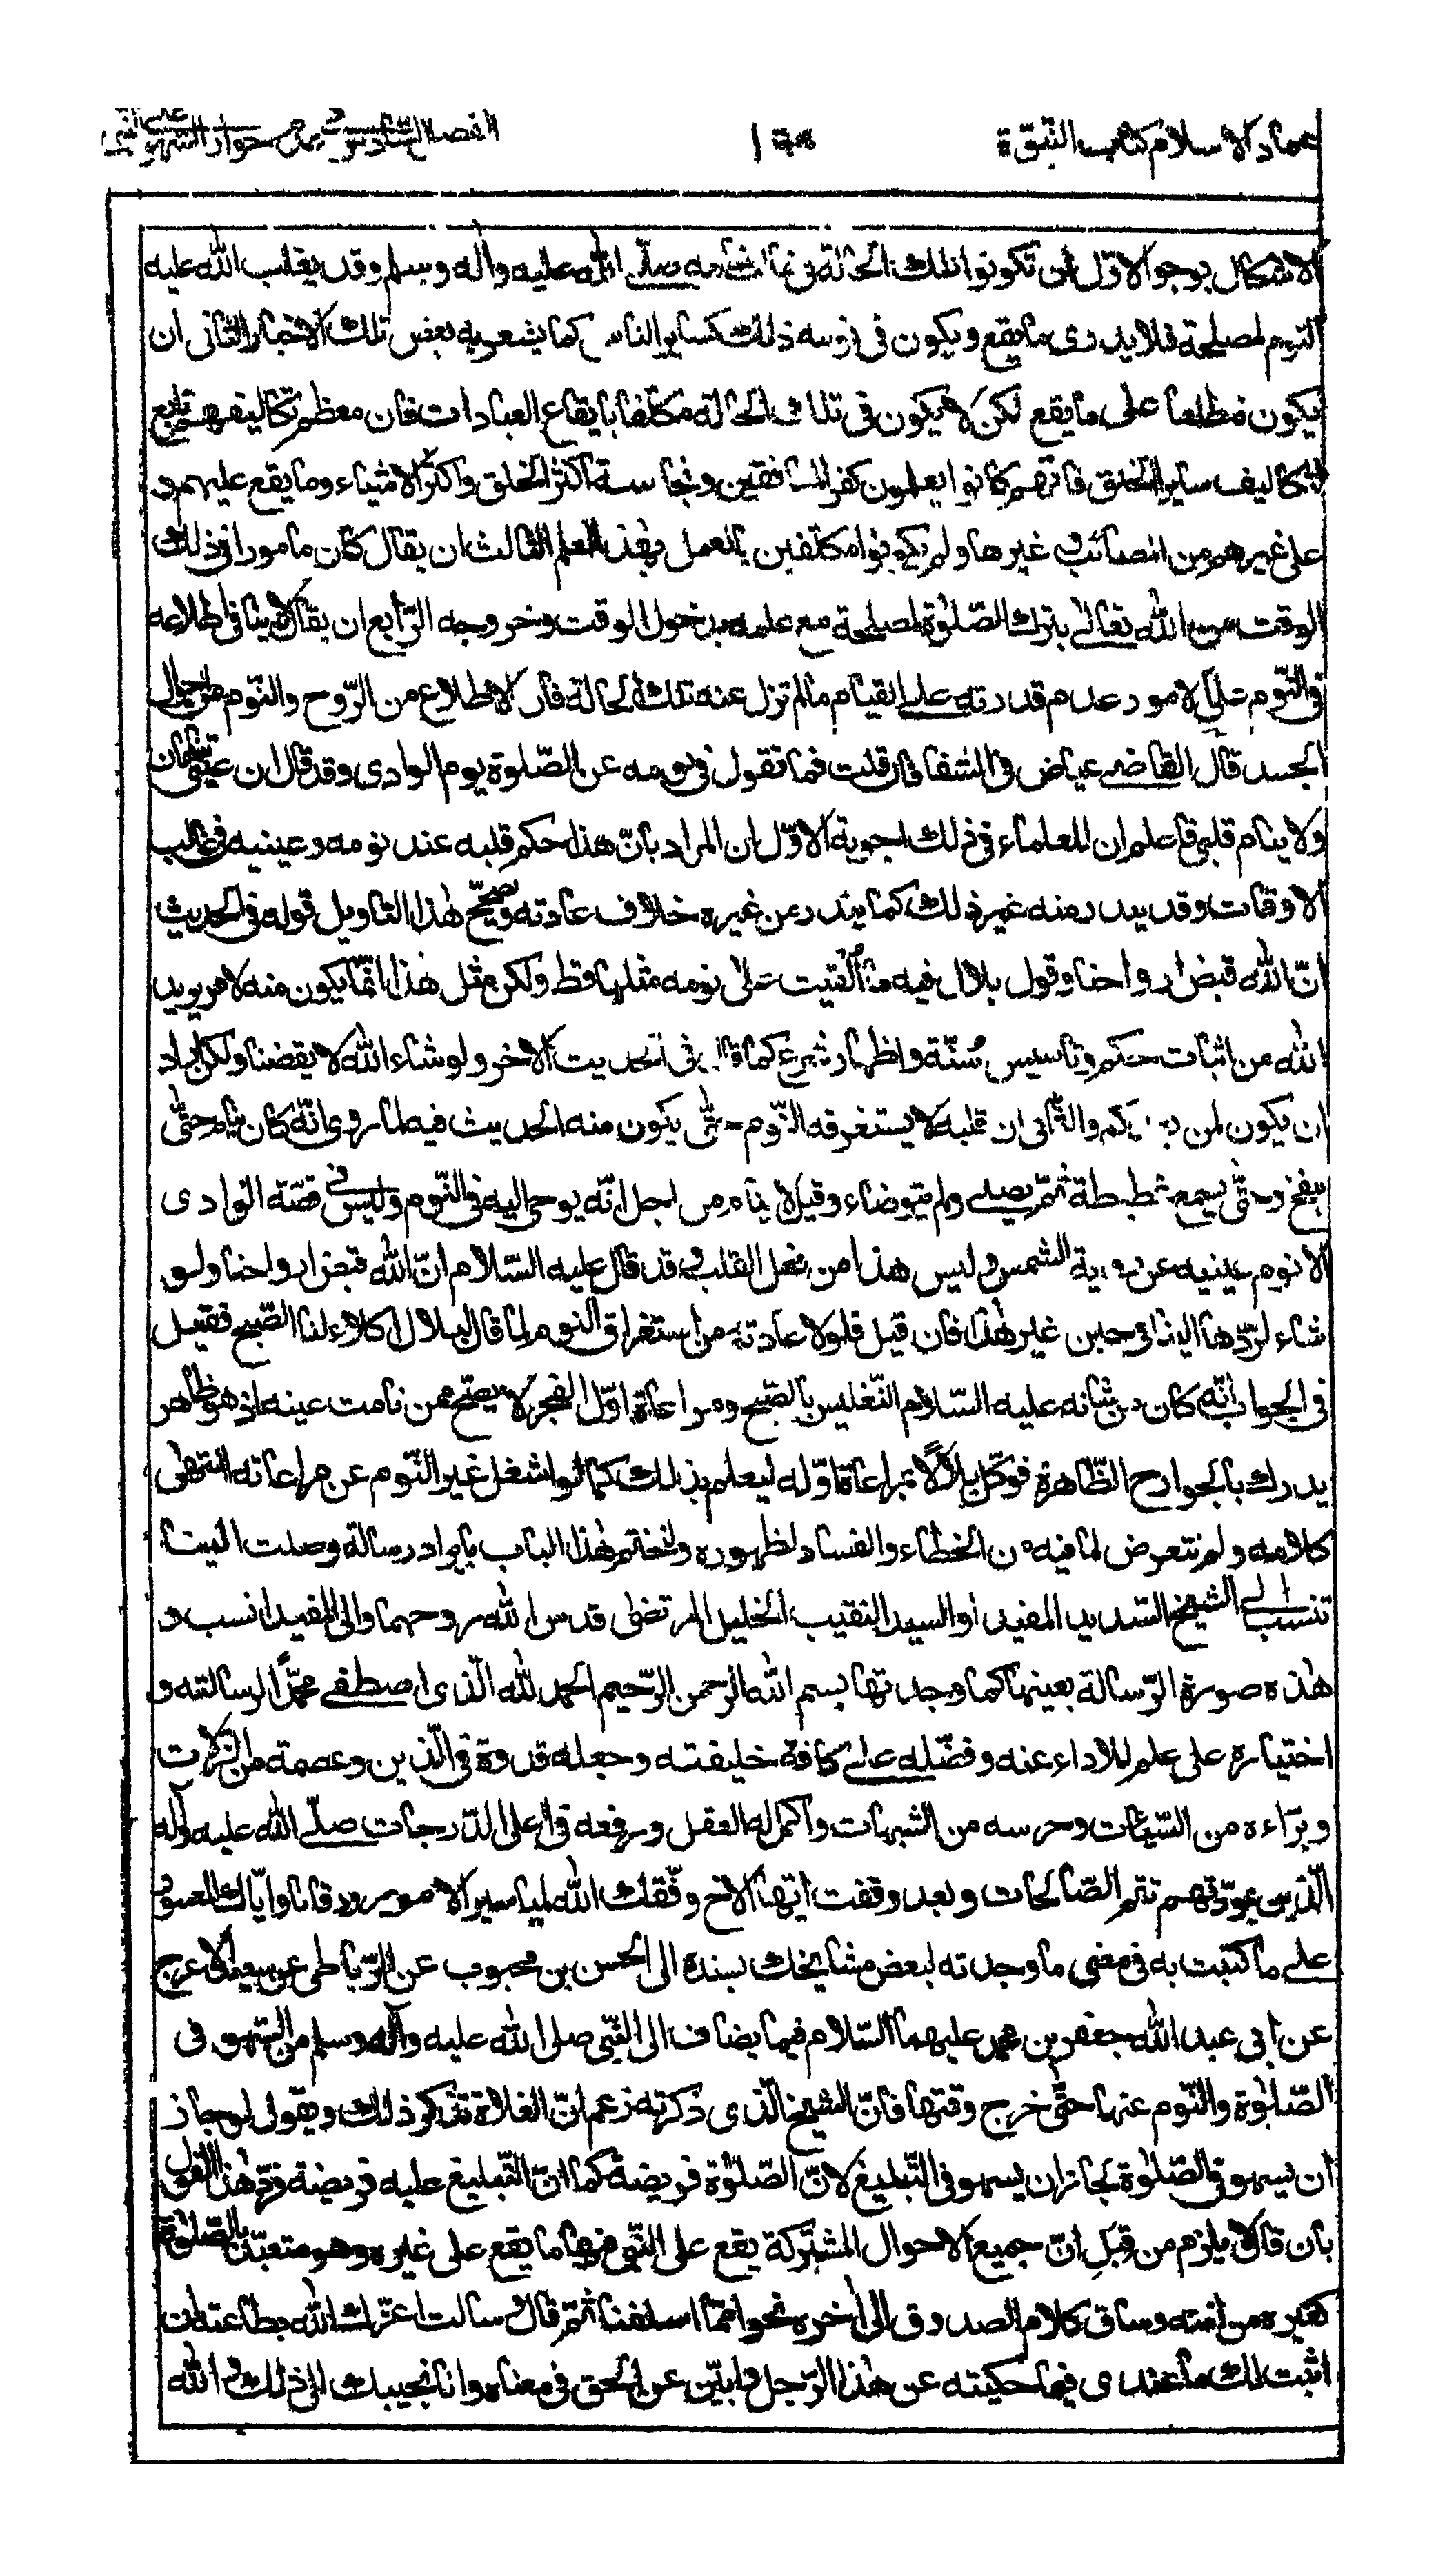 عماد الاسلام كتاب النبوّة
الفصل السّادس جواز السّهو على النبي
الاشكال بوجوه الاوّل ان تكونوا تلك الحالة في غالب منامه صلّى الله عليه واله وسلم وقد يغلب الله عليه
النوم لمصلحة فلا يدرى ما يقع ويكون في نومه ذلك كساير الناس كما يشعر به بعض تلك الاخبار الثانى ان
يكون مطلعا على ما يقع لكن لا يكون في تلك الحالة مكلّفا بايقاع العبادات فان معظم تكاليفهم تابع
لتكاليف ساير الخلق فانهم كانوا يعلمون كفر المنافقين ونجاسة اكثر الخلق واكثر الاشياء وما يقع عليهم و
على غيرهم من المصائب وغيرها ولم يكونوا مكلّفين بالعمل بهذا العلم الثالث ان يقال كان مامورا في ذلك
الوقت من الله تعالى بترك الصّلوة لمصلحة مع علمه بدخول الوقت وخروجه الرّابع ان يقال لا ينافى اطلاعه
في النّوم على الامور عدم قدرته على القيام ما لم تزل عنه تلك الحالة فان الاطلاع من الرّوح والنّوم من احوال
الجسد قال القاضى عياض في الشفا فان قلت فما تقول في نومه عن الصّلوة يوم الوادى وقد قال ان عينىّ تنامان
ولا ينام قلبى فاعلم ان للعلماء في ذلك اجوبة الاوّل ان المراد بانّ هذا حكم قلبه عند نومه وعينيه في غالب
الاوقات وقد يندر منه غير ذلك كما يندر من غيره خلاف عادته ويصحّح هذا التاويل قوله في الحديث
انّ الله قبض ارواحنا وقول بلال فيه ما اُلقيت علىّ نومه مثلها قط ولكن مثل هذا انّما يكون منه لامر يريد
الله من اثبات حكم وتاسيس سُنّة واظهار شرع كما قال في الحديث الاخر ولو شاء الله لايقضنا ولكن اراد
ان يكون لمن بعدكم والثّانى ان قلبه لا يستغرقه النّوم حتّى يكون منه الحديث فيه لما روى انّه كان ينام حتّى
ينفخ وحتّى يسمع غطيطة ثمّ يصلى ولم يتوضاء وقيل لا ينام من اجل انّه يوحى اليه في النّوم وليس في قصّة الوادى
الا نوم عينيه عن روية الشمس وليس هذا من فعل القلب وقد قال عليه السّلام انّ الله قبض ارواحنا ولو
شاء لردّها الينا في حين غير هذا فان قيل فلولا عادته من استغراق النوم لما قال لبلال اكلاء لنا الصّبح فقيل
في الجواب انّه كان من شانه عليه السّلام التّغليس بالصّبح ومراعاة اوّل الفجر لا يصحّ ممن نامت عينه اذ هو ظاهر
يدرك بالجوارح الظّاهرة فوكّل بلالاً بمراعاة اوّله ليعلم بذلك كما لو اشغل غير النّوم عن مراعاته انتهى
كلامه ولم نتعرض لما فيه من الخطاء والفساد لظهوره ولنختم هذا الباب بايراد رسالة وصلت الينا
تنسب الى الشيخ السّديد المفيد او السيد النقيب الجليل المرتضى قدس الله روحهما والى المفيد انسب و
هذه صورة الرّسالة بعينها كما وجدتها بسم الله الرّحمن الرّحيم الحمد لله الّذى اصطفى محمّدا لرسالته و
اختياره على علم للاداء عنه وفضّله على كافة خليفته وجعله قدوة في الدّين وعصمة من الزّلات
وبرّاءه من السّيئات وحرسه من الشبهات واكمل له العقل ورفعه في اعلى الدّرجات صلّى الله عليه وآله
الّذين بمودّتهم تتم الصّالحات وبعد وقفت ايّها الاخ وفّقك الله لمياسير الامور ووقانا وايّاك المعسور
على ما كتبت به في معنى ما وجدته لبعض مشايخك بسنده الى الحسن بن محبوب عن الرّباطى عن سعيد الاعرج
عن ابى عبد الله جعفر بن محمد عليهما السّلام فيما يضاف الى النّبىّ صلى الله عليه وآله وسلم من السّهو في
الصّلوة والنّوم عنها حتّى خرج وقتها فانّ الشيخ الّذى ذكرته زعم انّ الغلاة تنكر ذلك ويقول لو جاز
ان يسهو في الصّلوة لجاز ان يسهو في التّبليغ لانّ الصّلوة فريضة كما انّ التّبليغ عليه فريضة فردّ هذا القول
بان قال لا يلزم من قبل انّ جميع الاحوال المشتركة يقع على النّبى فيها ما يقع على غيره وهو متعبّد بالصّلوة
كغيره من امّته وساق كلام الصدوق الى اخره نحوا ممّا اسلفنا ثمّ قال وسالت اعزّك الله بطاعته ان
اثبت لك ما عندى فيما حكيته عن هذا الرّجل وابيّن عن الحق في معناه وانا نجيبك الى ذلك والله